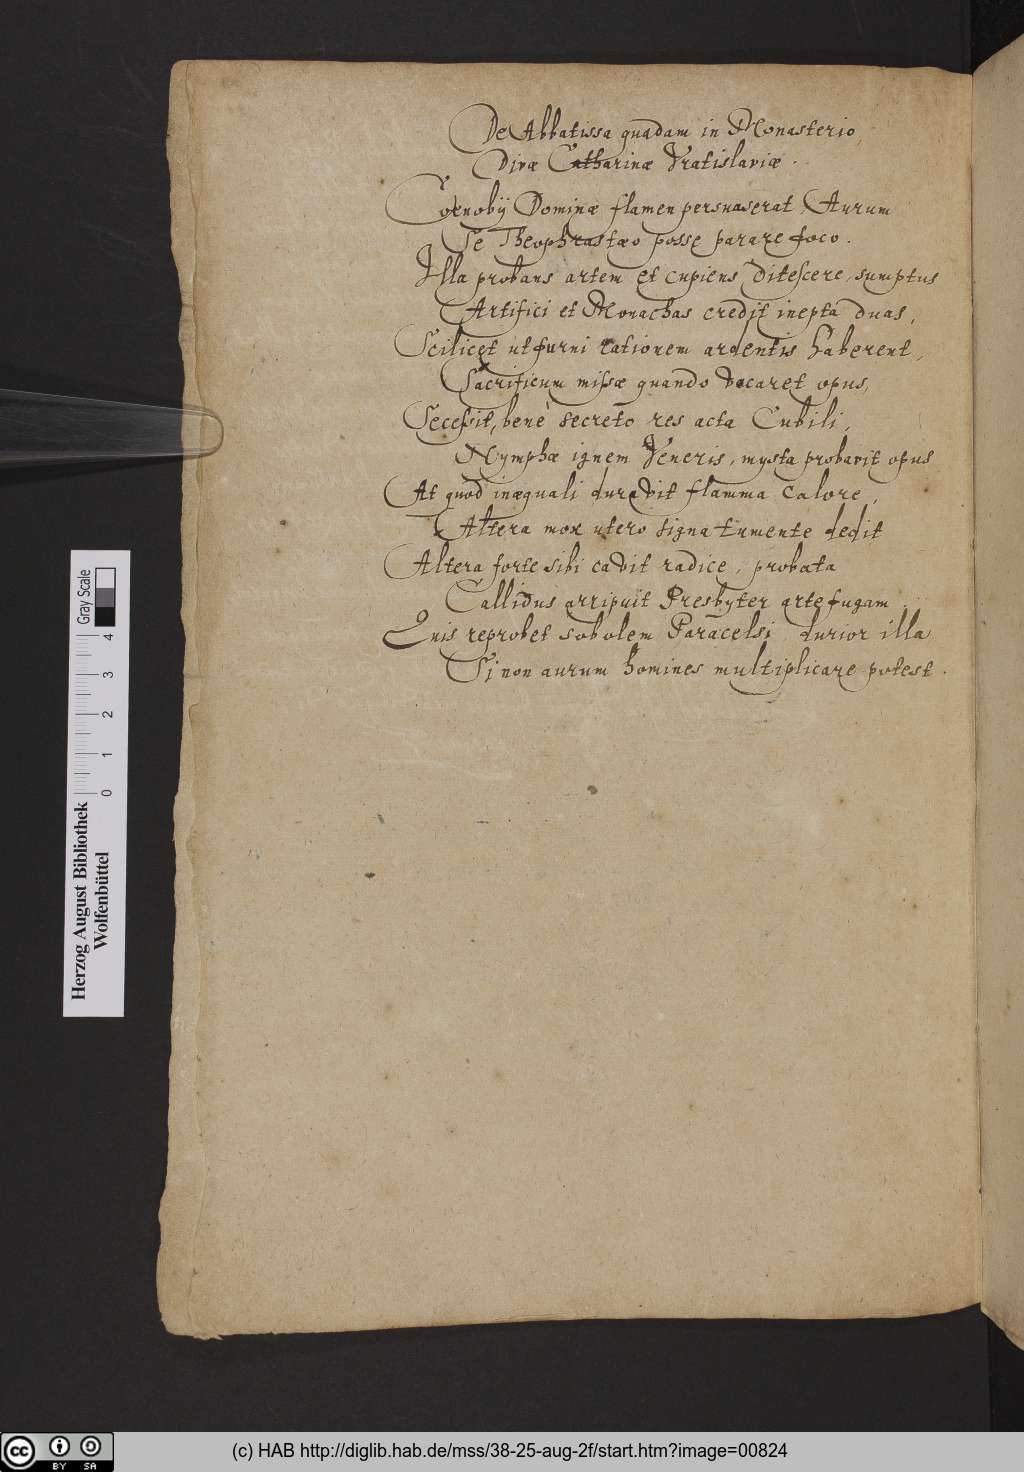 De Abbatissa quadam in Monasterio,
Divæ Catharinæ Vratislaviæ.
Coenobij Dominæ flamen persuaserat, Aurum
Se Theophrastæo posse parare foco.
Illa probans artem et cupiens ditescere, sumptus
Artifici et Monachas credit inepta duas,
Scilicet ut furni rationem ardentis haberent,
Sacrificum missæ quando vocaret opus,
Secessit, benè secreto res acta Cubili,
Nymphæ ignem Veneris, mysta probavit opus
At quod inæquali duravit flamma calore,
Altera mox utero signa tumente dedit
Altera forte sibi cavit radice, probata
Callidus arripuit Presbyter arte fugam.
Quis reprobet sobolem Paracelsi durior illa
Si non aurum homines multiplicare potest.
Herzog August Bibliothek
Wolfenbüttel
0 1 2 3 4
Gray Scale
cc BY SA
(c) HAB http://diglib.hab.de/mss/38-25-aug-2f/start.htm?image=00824